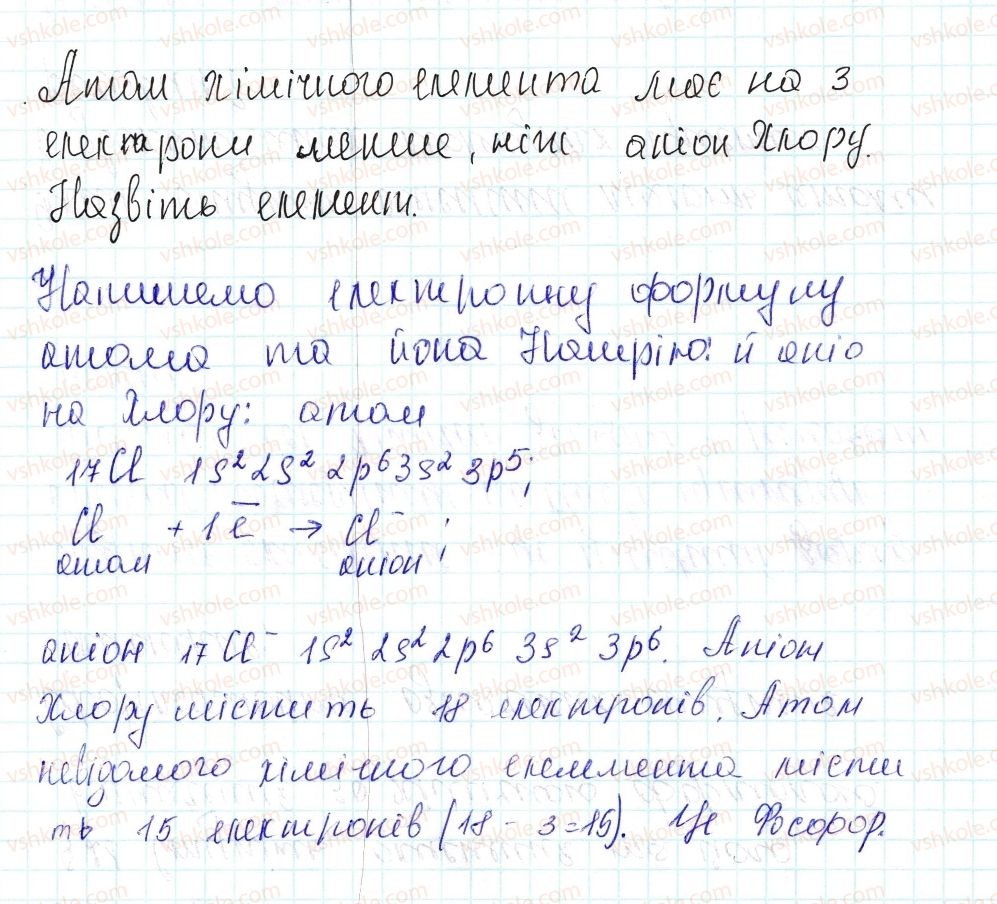 Атом хімічного елемента має на 3
електрони менше, ніж аніон Хлору.
Назвіть елемент.
Напишемо електронну формулу
атома та йона Натрію: й аніо
на Хлору: атом
17Cl 1s² 2s² 2p⁶ 3s² 3p⁵;
Cl + 1e̅ → Cl⁻;
атом аніон
аніон 17Cl⁻ 1s² 2s² 2p⁶ 3s² 3p⁶. Аніон
Хлору містить 18 електронів. Атом
невідомого хімічного елеммента місти
ть 15 електронів (18 - 3 = 15). Це Фосфор.